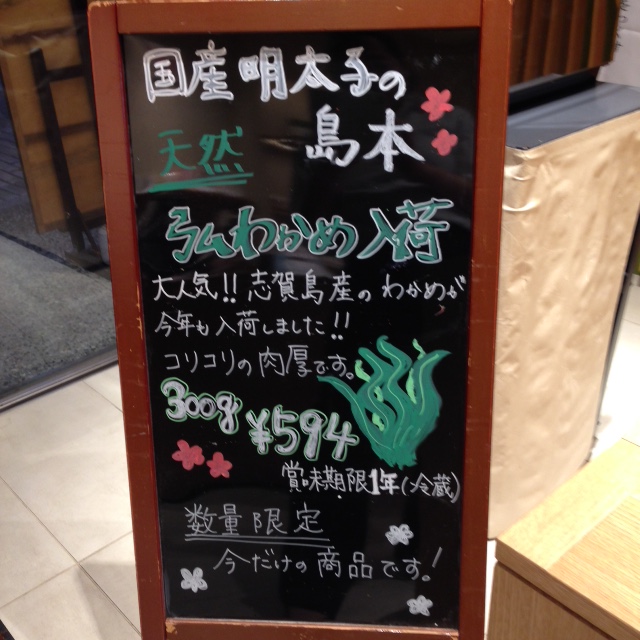 国産明太子の
島本
天然
弘わかめ入荷
大人気!!志賀島産のわかめが
今年も入荷しました!!
コリコリの肉厚です。
300g
¥594
賞味期限1年(冷蔵)
数量限定
今だけの商品です!